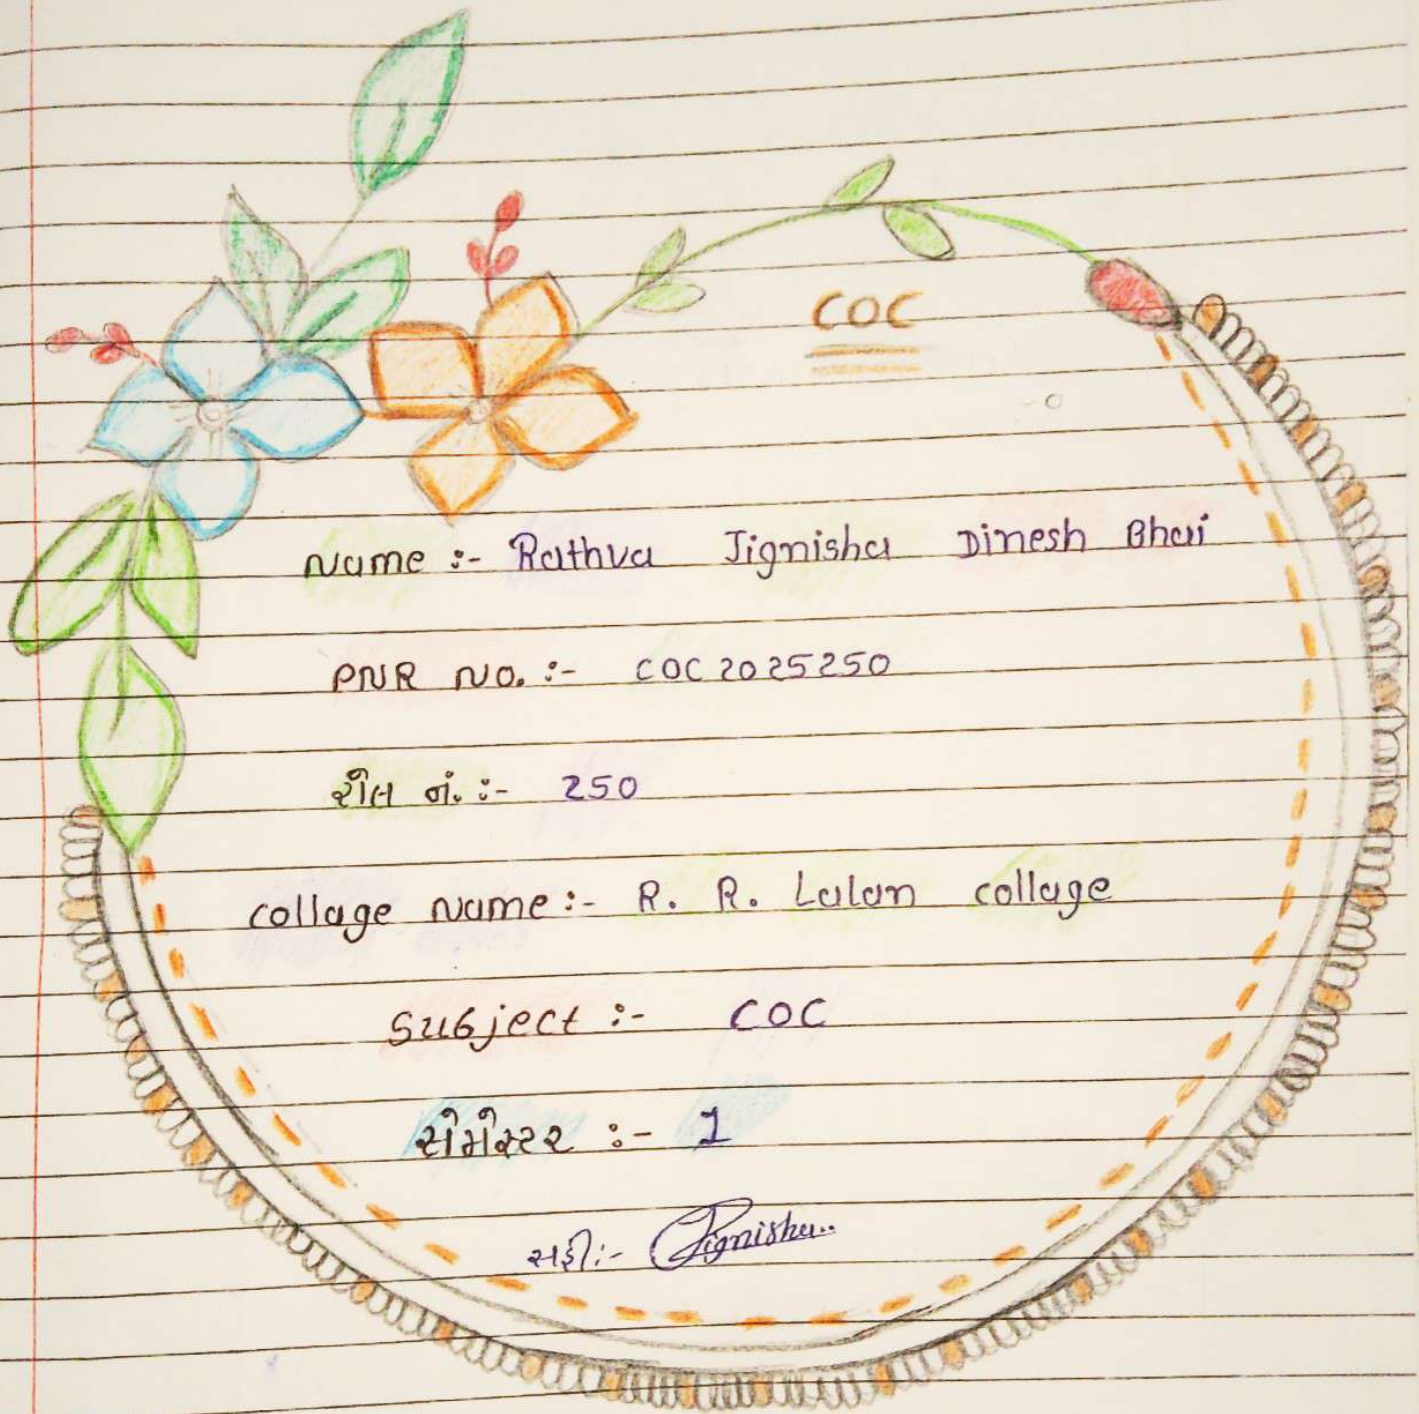 COC
Name :- Rathva Jignisha Dinesh Bhai
PNR NO. :- COC2025250
રોલ નં. :- 250
collage Name :- R. R. Lalan collage
Subject :- COC
સેમેસ્ટર :- 1
સહી :- Jignisha..